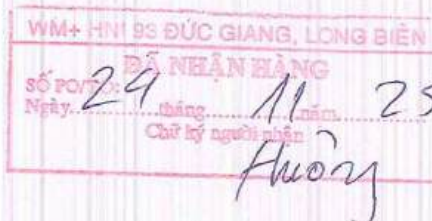 WM+ HNI 93 ĐỨC GIANG, LONG BIÊN
ĐÃ NHẬN HÀNG
SỐ PO/TO:
Ngày 29 tháng 11 năm 25
Chữ ký người nhận
Hương